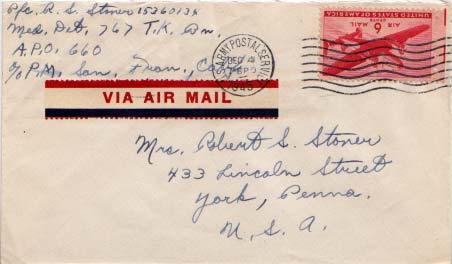 Pfc. R. S. Stoner 15360134
Med. Det, 767 T.K. Bn.
A.P.O. 660
c/o P.M. San. Fran., Calif.
U.S. ARMY POSTAL SERVICE
DEC 4
1945
UNITED STATES OF AMERICA
AIR MAIL
6
CENTS
VIA AIR MAIL
Mrs. Robert S. Stoner
433 Lincoln Street
York, Penna.
U. S. A.